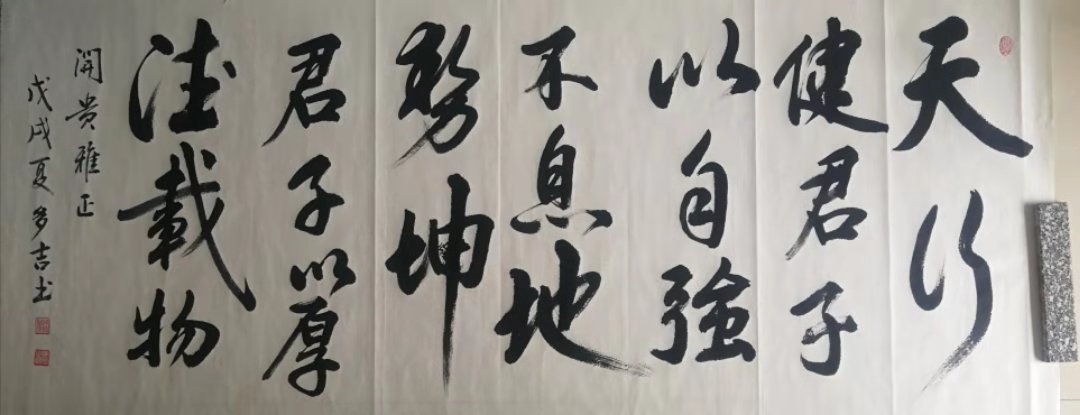 天行
健君子
以自強
不息地
势坤
君子以厚
德載物
開贵雅正
戊戌夏多吉书